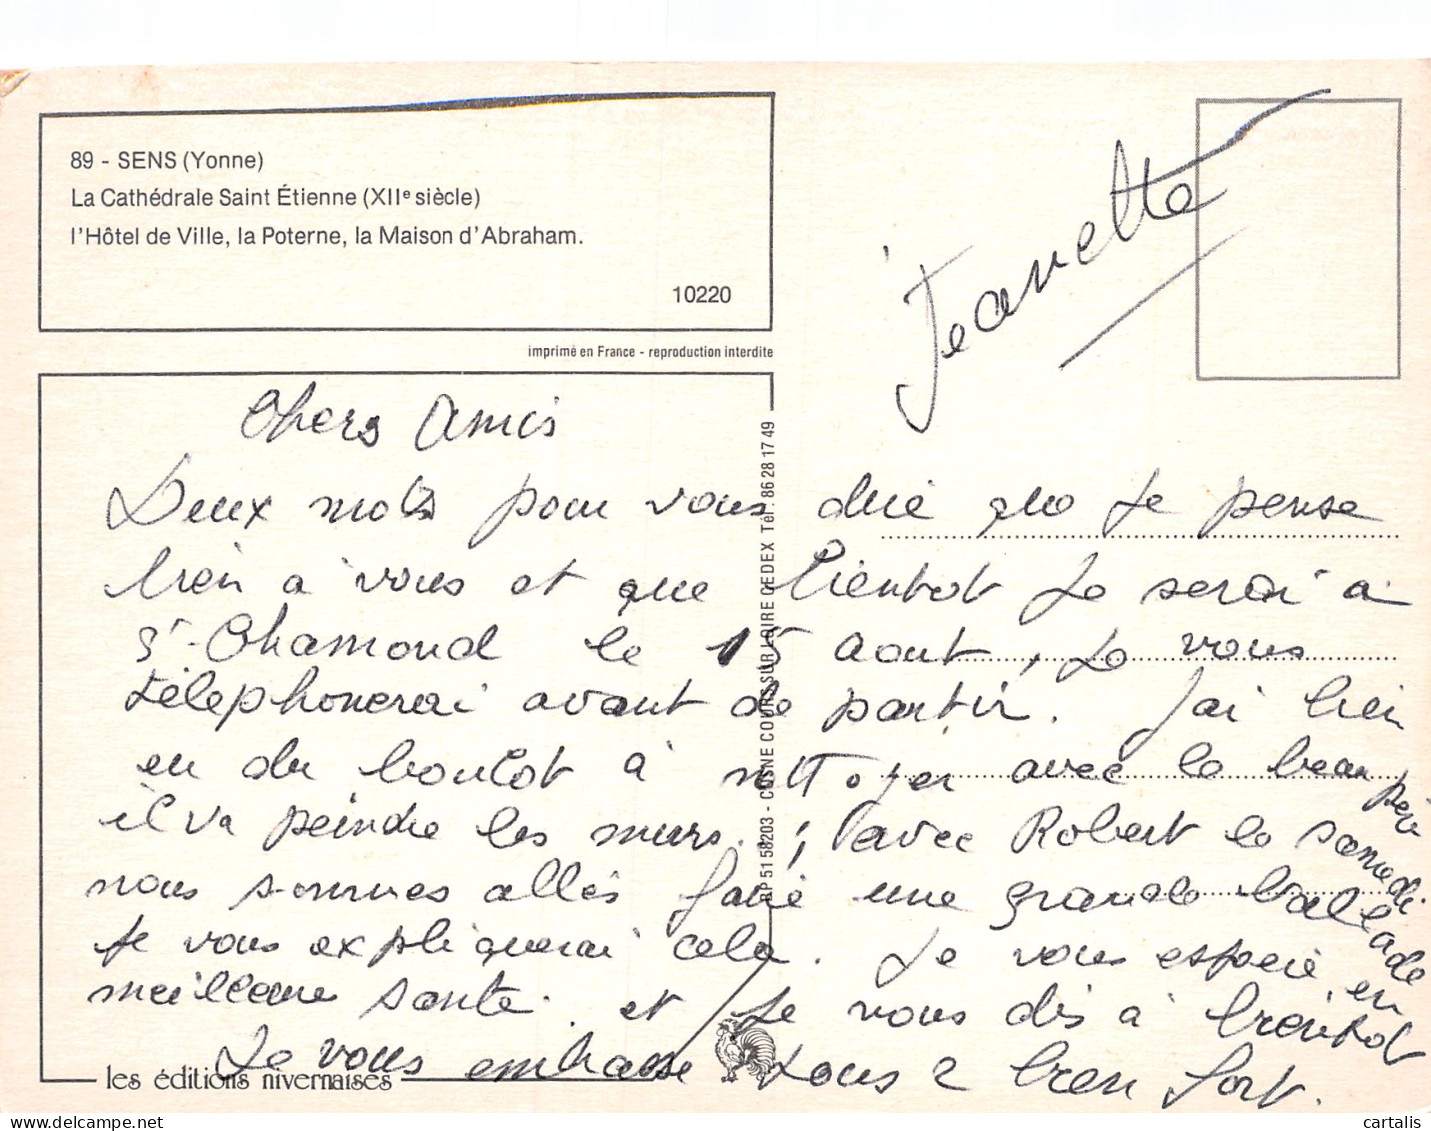 89 - SENS (Yonne)
La Cathédrale Saint Étienne (XIIe siècle)
l'Hôtel de Ville, la Poterne, la Maison d'Abraham.
10220
imprimé en France - reproduction interdite
Jeanette
Chers Amis
Deux mots pour vous dire que je pense
bien a vous et que bientot je serai a
St-Chamond le 15 aout, je vous
téléphonerai avant de partir. J'ai bien
eu du boulot à nettoyer avec le beau père
il va peindre les murs. ; avec Robert le samedi
nous sommes allés faire une grande ballade
je vous expliquerai cela. Je vous espère en
meilleure santé. et je vous dis à bientot
Je vous embrasse tous 2 bien fort.
RP 51 58203 - COSNE COURS SUR LOIRE CEDEX Tél. 86 28 17 49
les éditions nivernaises
cartalis